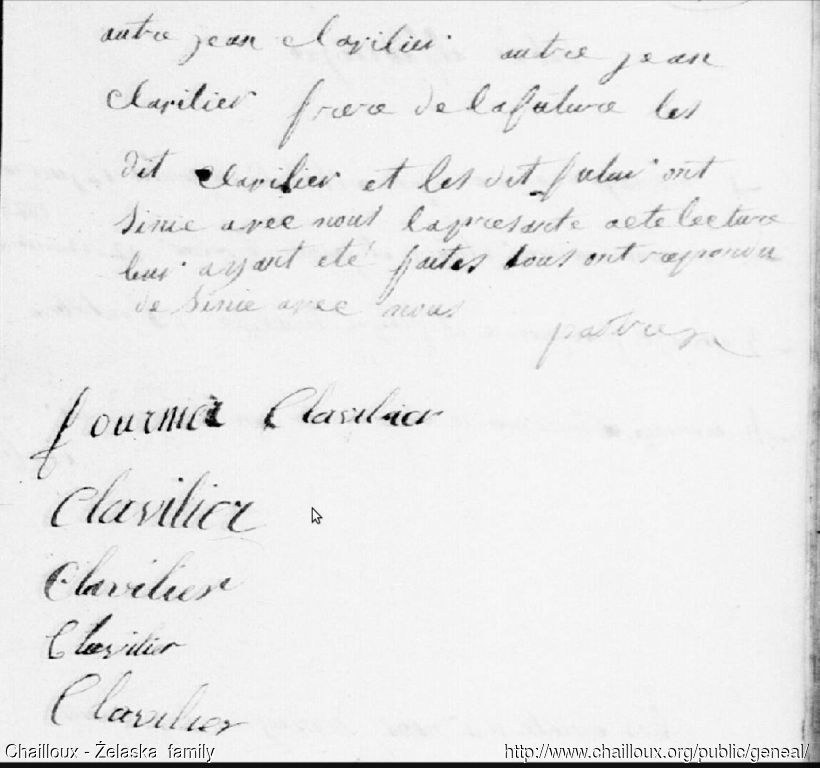 autre jean clavilier autre jean
clavilier frere de la future les
dit clavilier et les dit futur ont
sinie avec nous la presante acte lecture
leur ayant eté faites tous ont reponu
de sinie avec nous
fournier Clavilier
Clavilier
Clavilier
Clavilier
Clavilier
Chailloux - Żelaska family
http://www.chailloux.org/public/geneal/